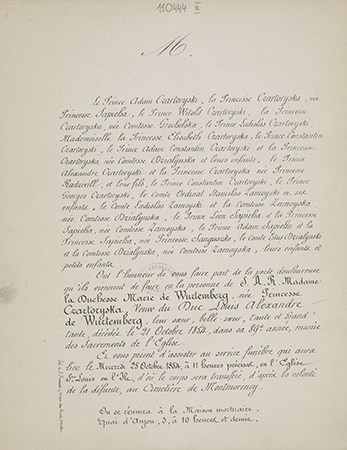 110444 III
M.
Le Prince Adam Czartoryski, la Princesse Czartoryska, née
Princesse Sapieha, le Prince Witold Czartoryski, la Princesse
Czartoryska, née Comtesse Grocholska, le Prince Ladislas Czartoryski,
Mademoiselle la Princesse Elisabeth Czartoryska, le Prince Constantin
Czartoryski, le Prince Adam Constantin Czartoryski et la Princesse
Czartoryska née Comtesse Dzialynska et leurs enfants, le Prince
Alexandre Czartoryski et la Princesse Czartoryska née Princesse
Radzwill, et leur fils, le Prince Constantin Czartoryski, le Prince
Georges Czartoryski, le Comte Ordinat Stanislas Zamoyski et ses
enfants, le Comte Ladislas Zamoyski et la Comtesse Zamoyska
née Comtesse Dzialynska, le Prince Léon Sapieha et la Princesse
Sapieha, née Comtesse Zamoyska, le Prince Adam Sapieha et la
Princesse Sapieha, née Princesse Sanguszko, le Comte Titus Dzialynski
et la Comtesse Dzialynska, née Comtesse Zamoyska, leurs enfants et
petits enfants.
Ont l'honneur de vous faire part de la perte douloureuse
qu'ils viennent de faire, en la personne de S. A. R. Madame
la Duchesse Marie de Wurtemberg, née Princesse
Czartoryska, Veuve du Duc Louis Alexandre
de Wurtemberg, leur sœur, belle sœur, tante et Grand'
tante, décédée le 21 Octobre 1854, dans sa 89e année, munie
des Sacrements de l'Eglise.
Et vous prient d'assister au service funèbre qui aura
lieu le Mercredi 25 Octobre 1854, à 11 heures précises, en l'Eglise
St. Louis en l'Ile, d'où le corps sera transféré, d'après la volonté
de la défunte, au Cimetière de Montmorency.
On se réunira à la Maison mortuaire,
Quai d'Anjou, 3, à 10 heures et demie.